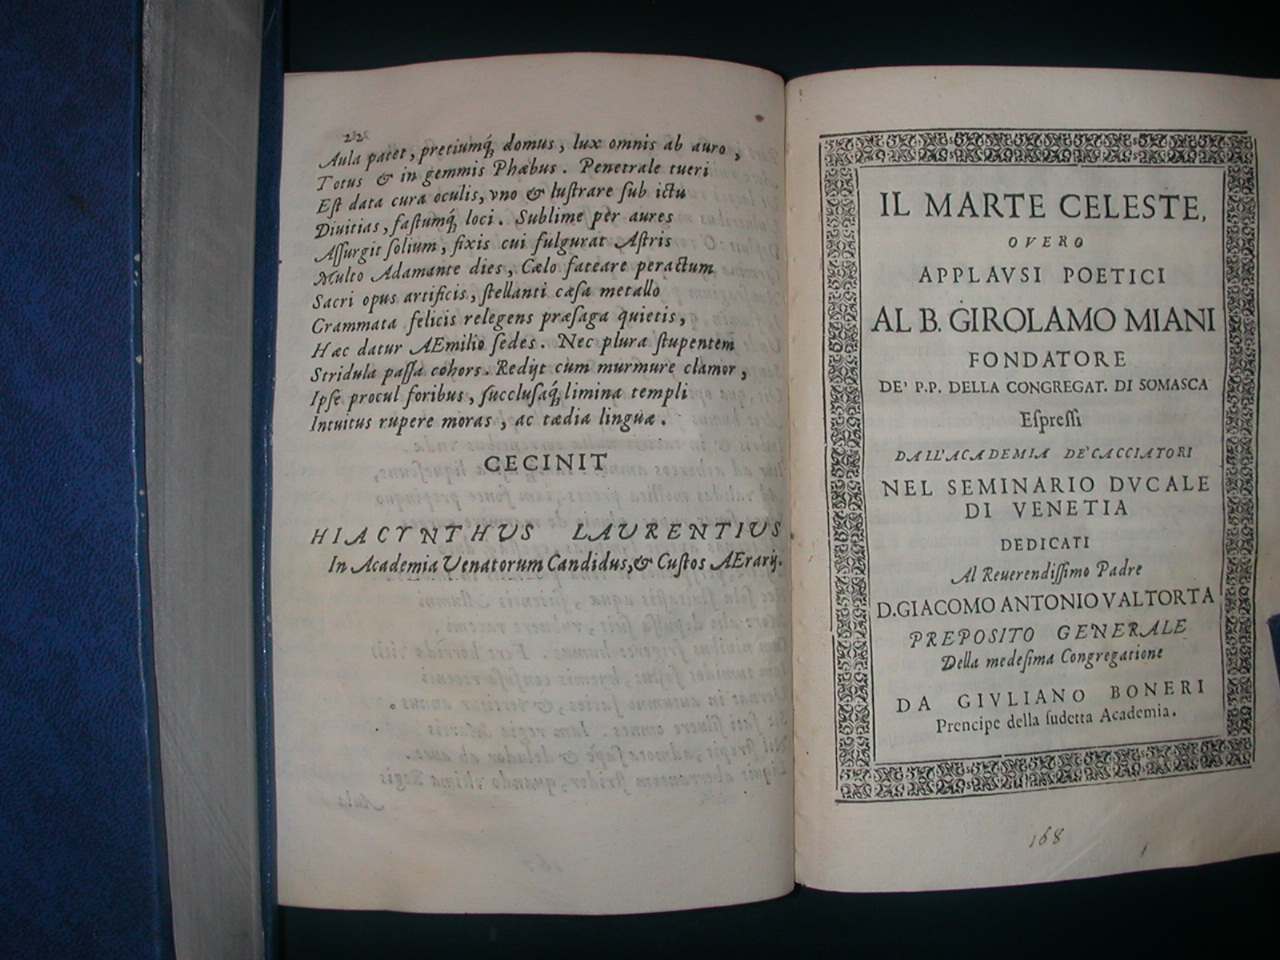 22
Aula patet, pretiumq́; domus, lux omnis ab auro,
Totus & in gemmis Phæbus. Penetrale tueri
Eſt data cura oculis, vno & luſtrare ſub ictu
Diuitias, faſtumq́; loci. Sublime per aures
Aſſurgit ſolium, fixis cui fulgurat Aſtris
Multo Adamante dies, Cælo fateare peractum
Sacri opus artificis, ſtellanti cæſa metallo
Grammata felicis relegens præſaga quietis,
Hæc datur AEmilio ſedes. Nec plura ſtupentem
Stridula paſſa cohors. Redijt cum murmure clamor,
Ipſe procul foribus, ſuccluſaq́; limina templi
Intuitus rupere moras, ac tædia linguæ.
CECINIT
HIACYNTHUS LAURENTIUS
In Academia Venatorum Candidus, & Cuſtos AErarij.
IL MARTE CELESTE,
OVERO
APPLAVSI POETICI
AL B. GIROLAMO MIANI
FONDATORE
DE' P.P. DELLA CONGREGAT. DI SOMASCA
Eſpreſſi
DALL'ACADEMIA DE'CACCIATORI
NEL SEMINARIO DVCALE
DI VENETIA
DEDICATI
Al Reuerendiſſimo Padre
D. GIACOMO ANTONIO VALTORTA
PREPOSITO GENERALE
Della medeſima Congregatione
DA GIVLIANO BONERI
Prencipe della ſudetta Academia.
168